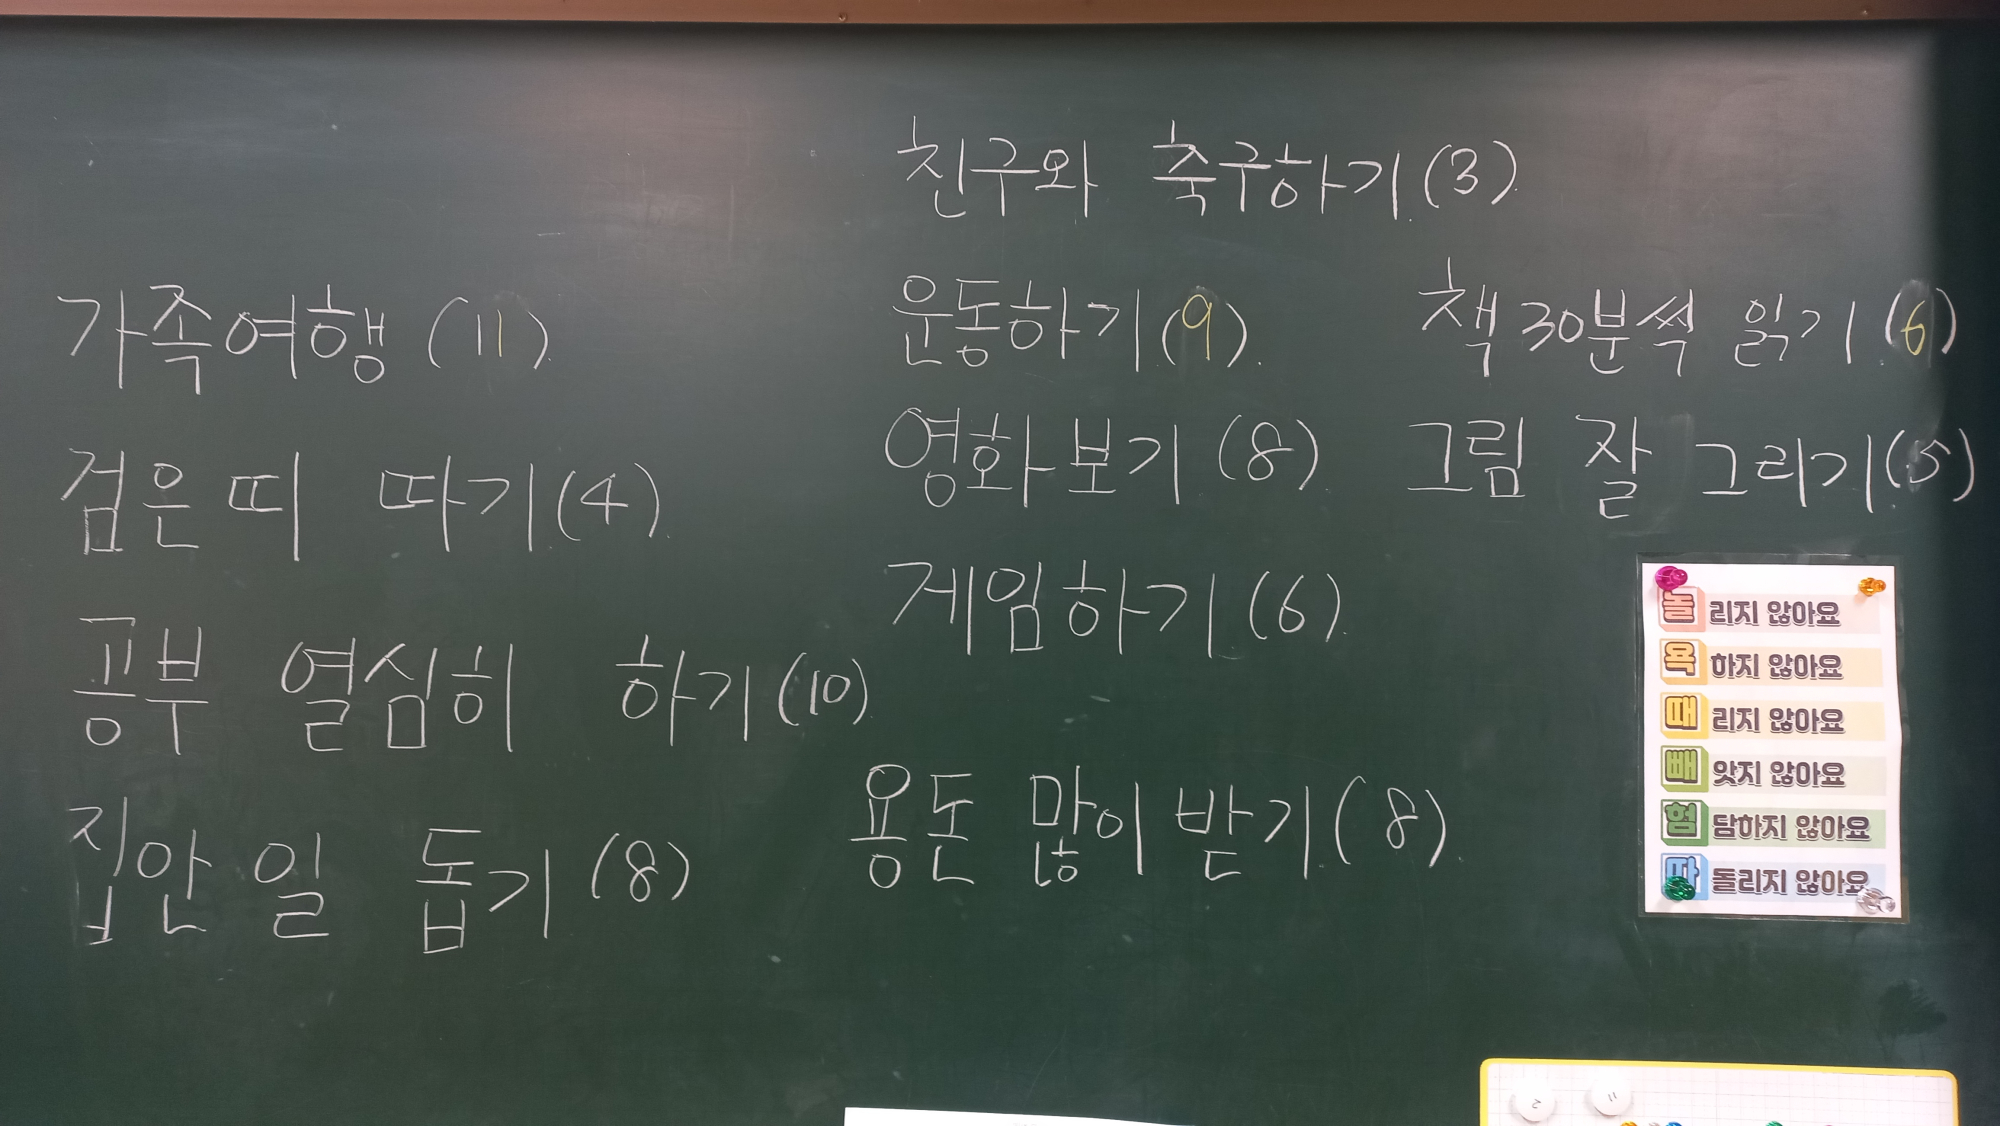 친구와 축구하기(3)
가족여행 (11)
운동하기(9)
책 30분씩 읽기(6)
검은띠 따기(4)
영화보기(8)
그림 잘 그리기(5)
공부 열심히 하기(10)
게임하기(6)
집안 일 돕기(8)
용돈 많이 받기(8)
놀리지 않아요
욕하지 않아요
때리지 않아요
빼앗지 않아요
험담하지 않아요
따돌리지 않아요
2
11